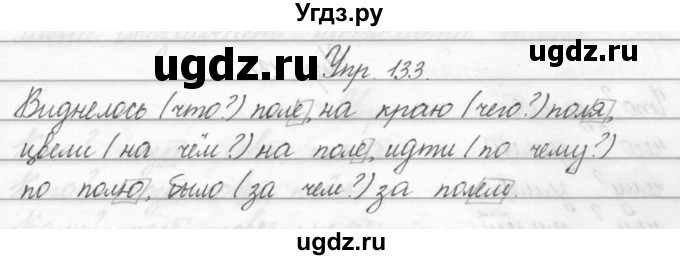 Угдз.ру
ugdz.ru ugdz.ru
Упр. 133.
Виднелось (что?) поле, на краю (чего?) поля,
цвели (на чём?) на поле, идти (по чему?)
по полю, было (за чем?) за полем.
ugdz.ru ugdz.ru
ugdz.ru